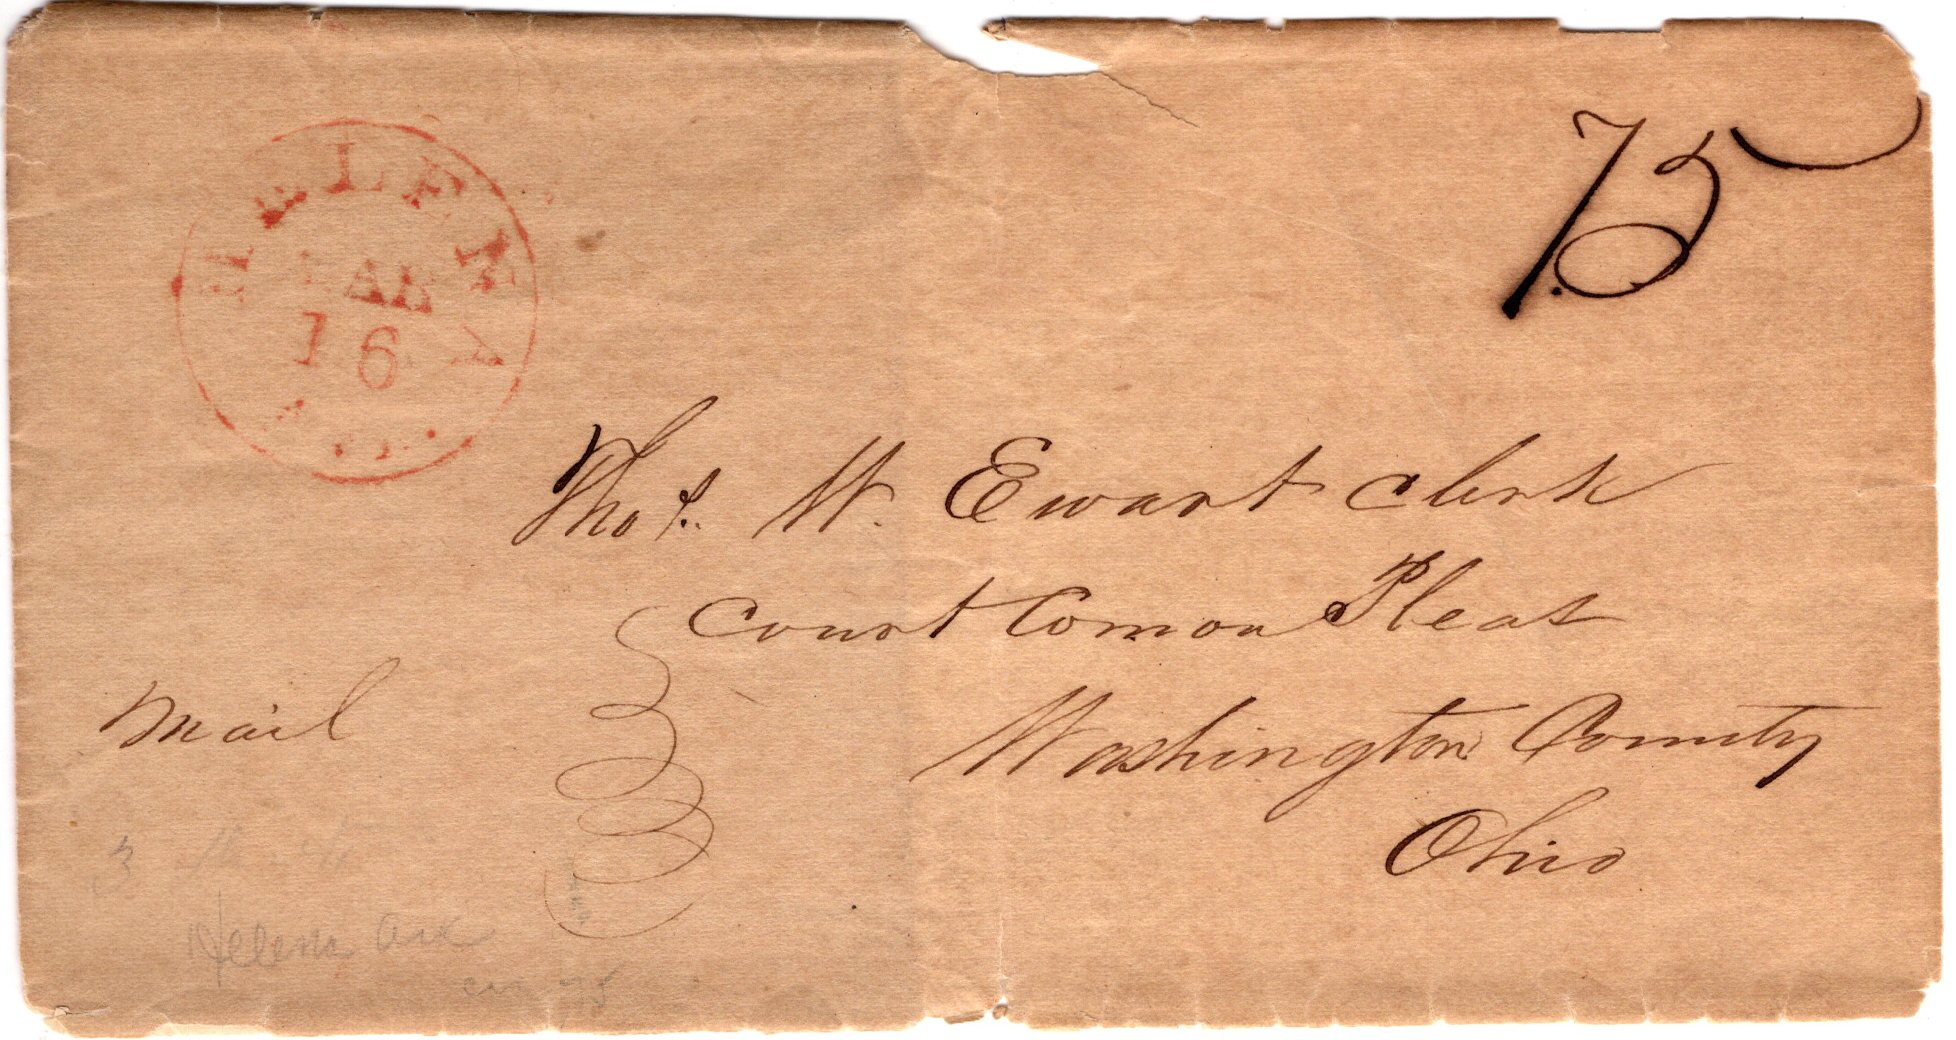 HELENA
JAN
16
75
Thos. W. Ewart Clerk
Court Comon Pleas
Washington County
Ohio
Mail
3
Helena Ark
75